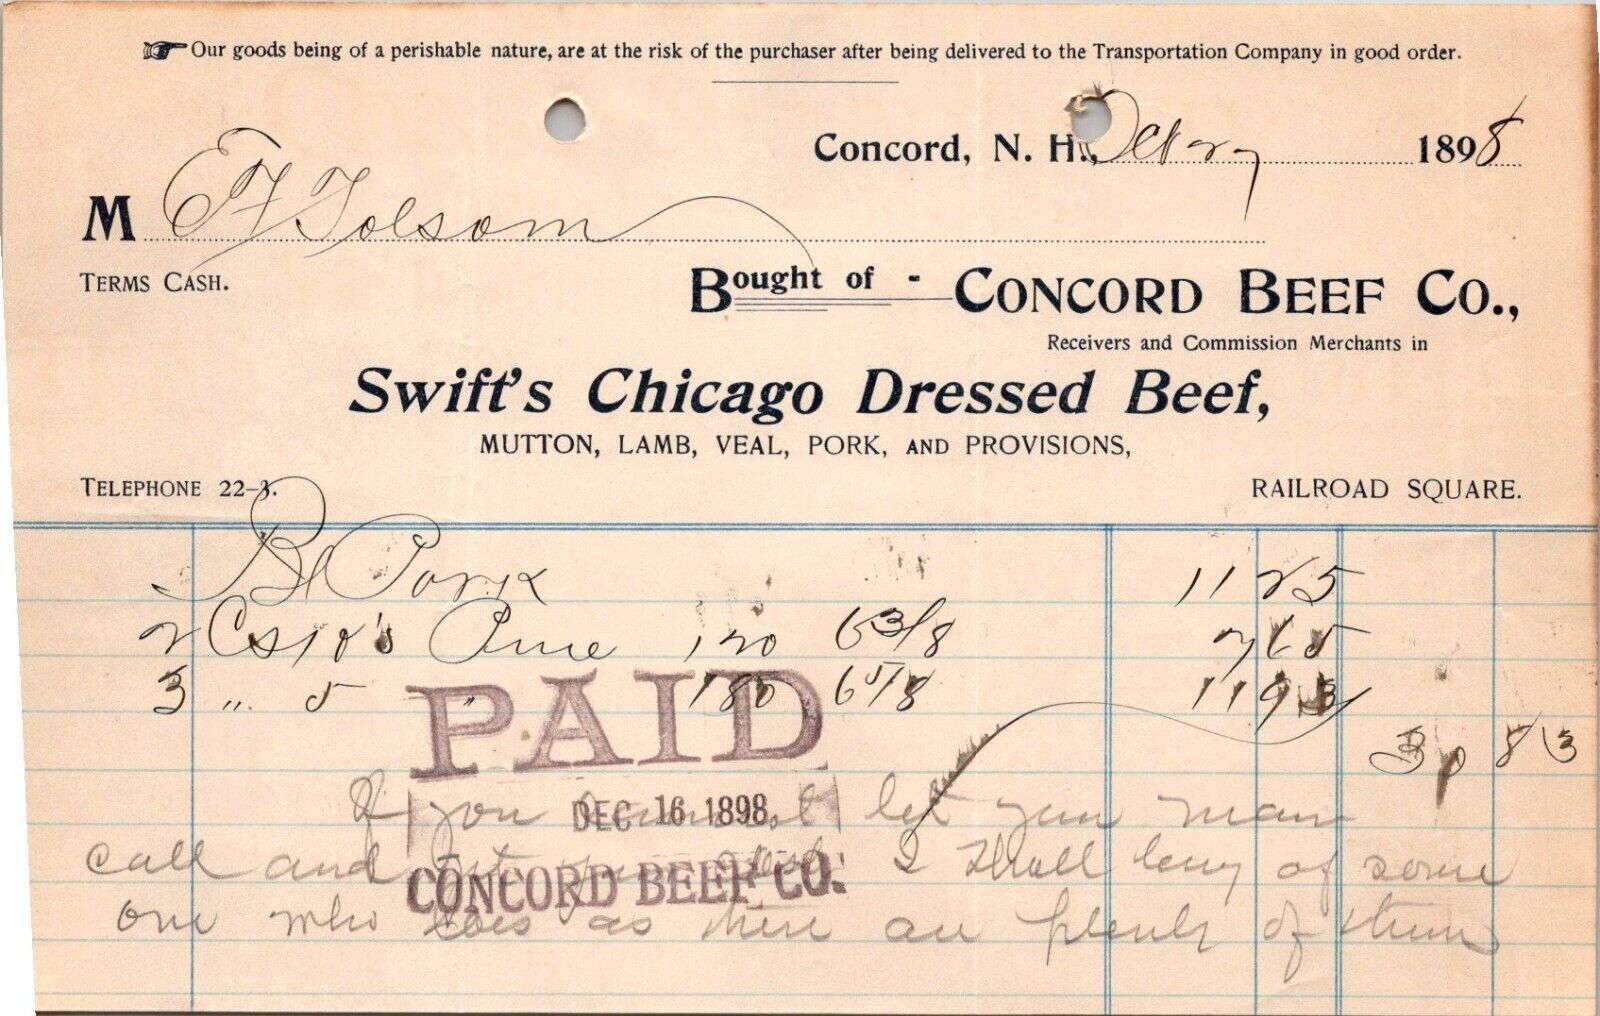 Our goods being of a perishable nature, are at the risk of the purchaser after being delivered to the Transportation Company in good order.
Concord, N. H., Oct 27 1898
M E F Folsom
TERMS CASH.
Bought of - CONCORD BEEF CO.,
Receivers and Commission Merchants in
Swift's Chicago Dressed Beef,
MUTTON, LAMB, VEAL, PORK, AND PROVISIONS,
TELEPHONE 22-3.
RAILROAD SQUARE.
Bl Pork 11 25
2 Cs 10's Pure 120 6 3/8 7 65
3 " 5 " 180 6 5/8 11 93
30 83
PAID
DEC 16 1898
CONCORD BEEF CO.
If you let your man
call and get I shall buy of some
one who does as there are plenty of them